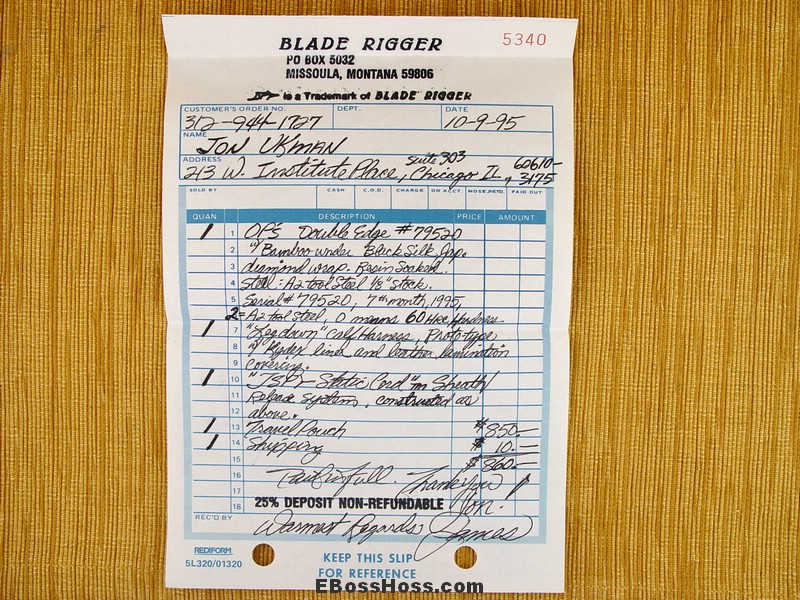 BLADE RIGGER
5340
PO BOX 5032
MISSOULA, MONTANA 59806
is a Trademark of BLADE RIGGER
CUSTOMER'S ORDER NO. DEPT. DATE
312-944-1727 10-9-95
NAME
JON UKMAN
ADDRESS
213 W. Institute Place, Suite 303 Chicago IL, 60610-3175
SOLD BY CASH C.O.D. CHARGE ON ACCT. MDSE. RETD. PAID OUT
QUAN DESCRIPTION PRICE AMOUNT
1 1 Double Edge #79520
2 w/ Bamboo under Black Silk Jap.
3 diamond wrap. Resin Soaked.
4 Steel: A2 tool Steel 1/8" stock.
5 Serial # 79520, 7th month, 1995,
2 = A2 tool Steel, 0 means 60 HRC Hardness
1 7 "Legdown" Calf Harness, Prototype
8 w/ Kydex liner and leather lamination
9 covering.
1 10 Static Cord" Sheath
11 Release System, constructed as
12 above.
1 13 Travel Pouch $850.—
1 14 Shipping $ 10.—
15 $860.—
16 Paid in full. Thank You
17
18 25% DEPOSIT NON-REFUNDABLE Jon.
REC'D BY Warmest Regards, James
REDIFORM
5L320/01320
KEEP THIS SLIP
FOR REFERENCE
EBossHoss.com